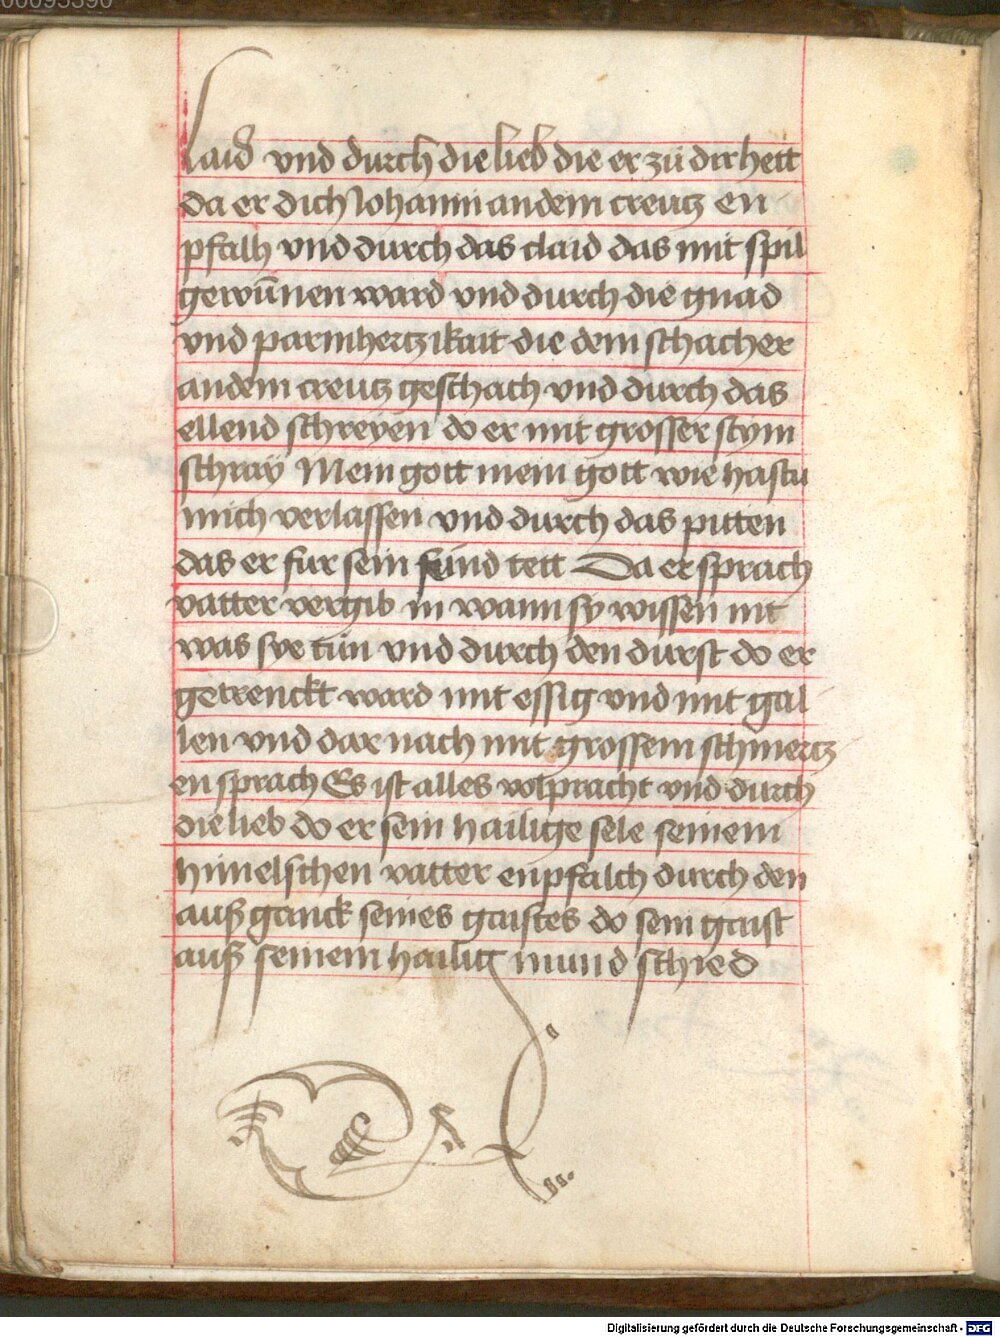 00095390
laid vnd durch die lieb die er zů dir hett
da er dich Iohanni an dem creutz en
pfalh vnd durch das claid das mit spil
gewūnen ward vnd durch die gnad
vnd parmhertzikait die dem schacher
an dem creutz geschach vnd durch das
ellend schreyen do er mit grosser stym
schray Mein gott mein gott wie hastu
mich verlassen vnd durch das pitten
das er fur sein feind tett Da er sprach
vatter vergib in wann sy wissen nit
was sye tun vnd durch den durst do er
getrenckt ward mit essig vnd mit gal
len vnd dar nach mit grossem schmertz
en sprach Es ist alles volpracht vnd durch
die lieb do er sein hailige sele seinem
himelschen vatter enpfalch durch den
außganck seines gaistes do sein gaist
auß seinem hailig mund schied
Digitalisierung gefördert durch die Deutsche Forschungsgemeinschaft - DFG